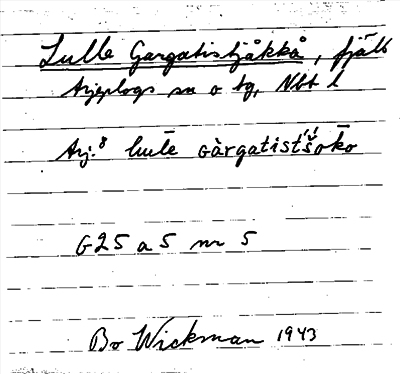 Lulle Gargatistjåkkå, fjäll
Arjeplogs sn o tg, Nbt l
Arj.8 lulĕ Gàrgatistš́okō
G25 a 5 nr 5
Bo Wickman 1943